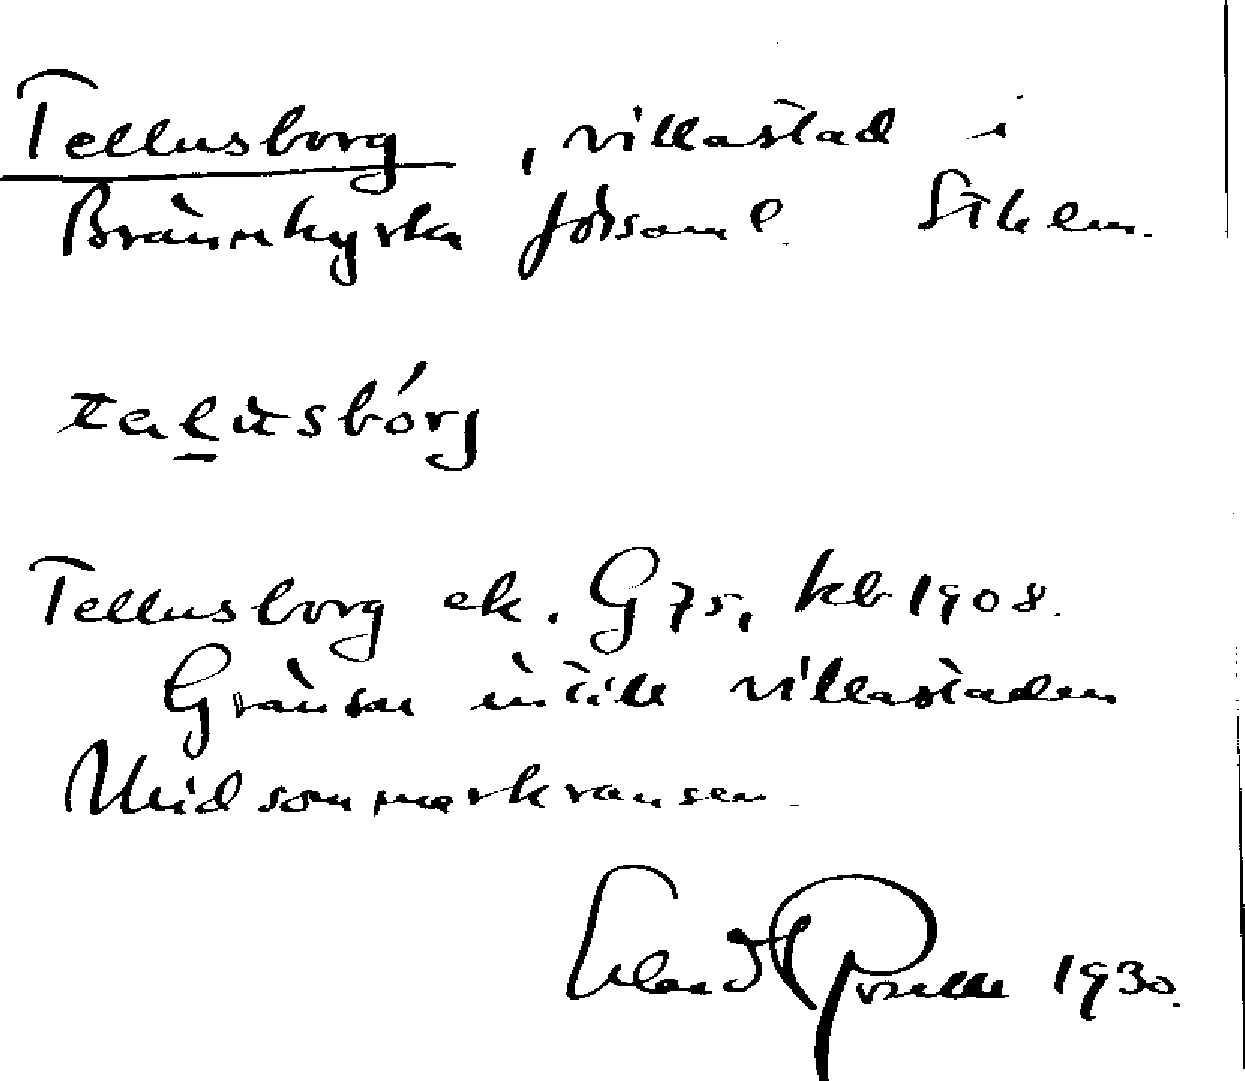 Tellusborg, villastad i
Brännkyrka förs:aml. Sthlm.
tälusbórj
Tellusborg ek. G 75, kb 1908.
Gränsar intill villastaden
Midsommarkransen.
Erland Rosell 1930.